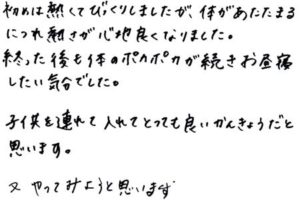 初めは熱くてびっくりしましたが、体があたたまる
につれ熱さが心地良くなりました。
終った後も体のポカポカが続きお昼寝
したい気分でした。
子供を連れて入れてとっても良いかんきょうだと
思います。
又やってみようと思います